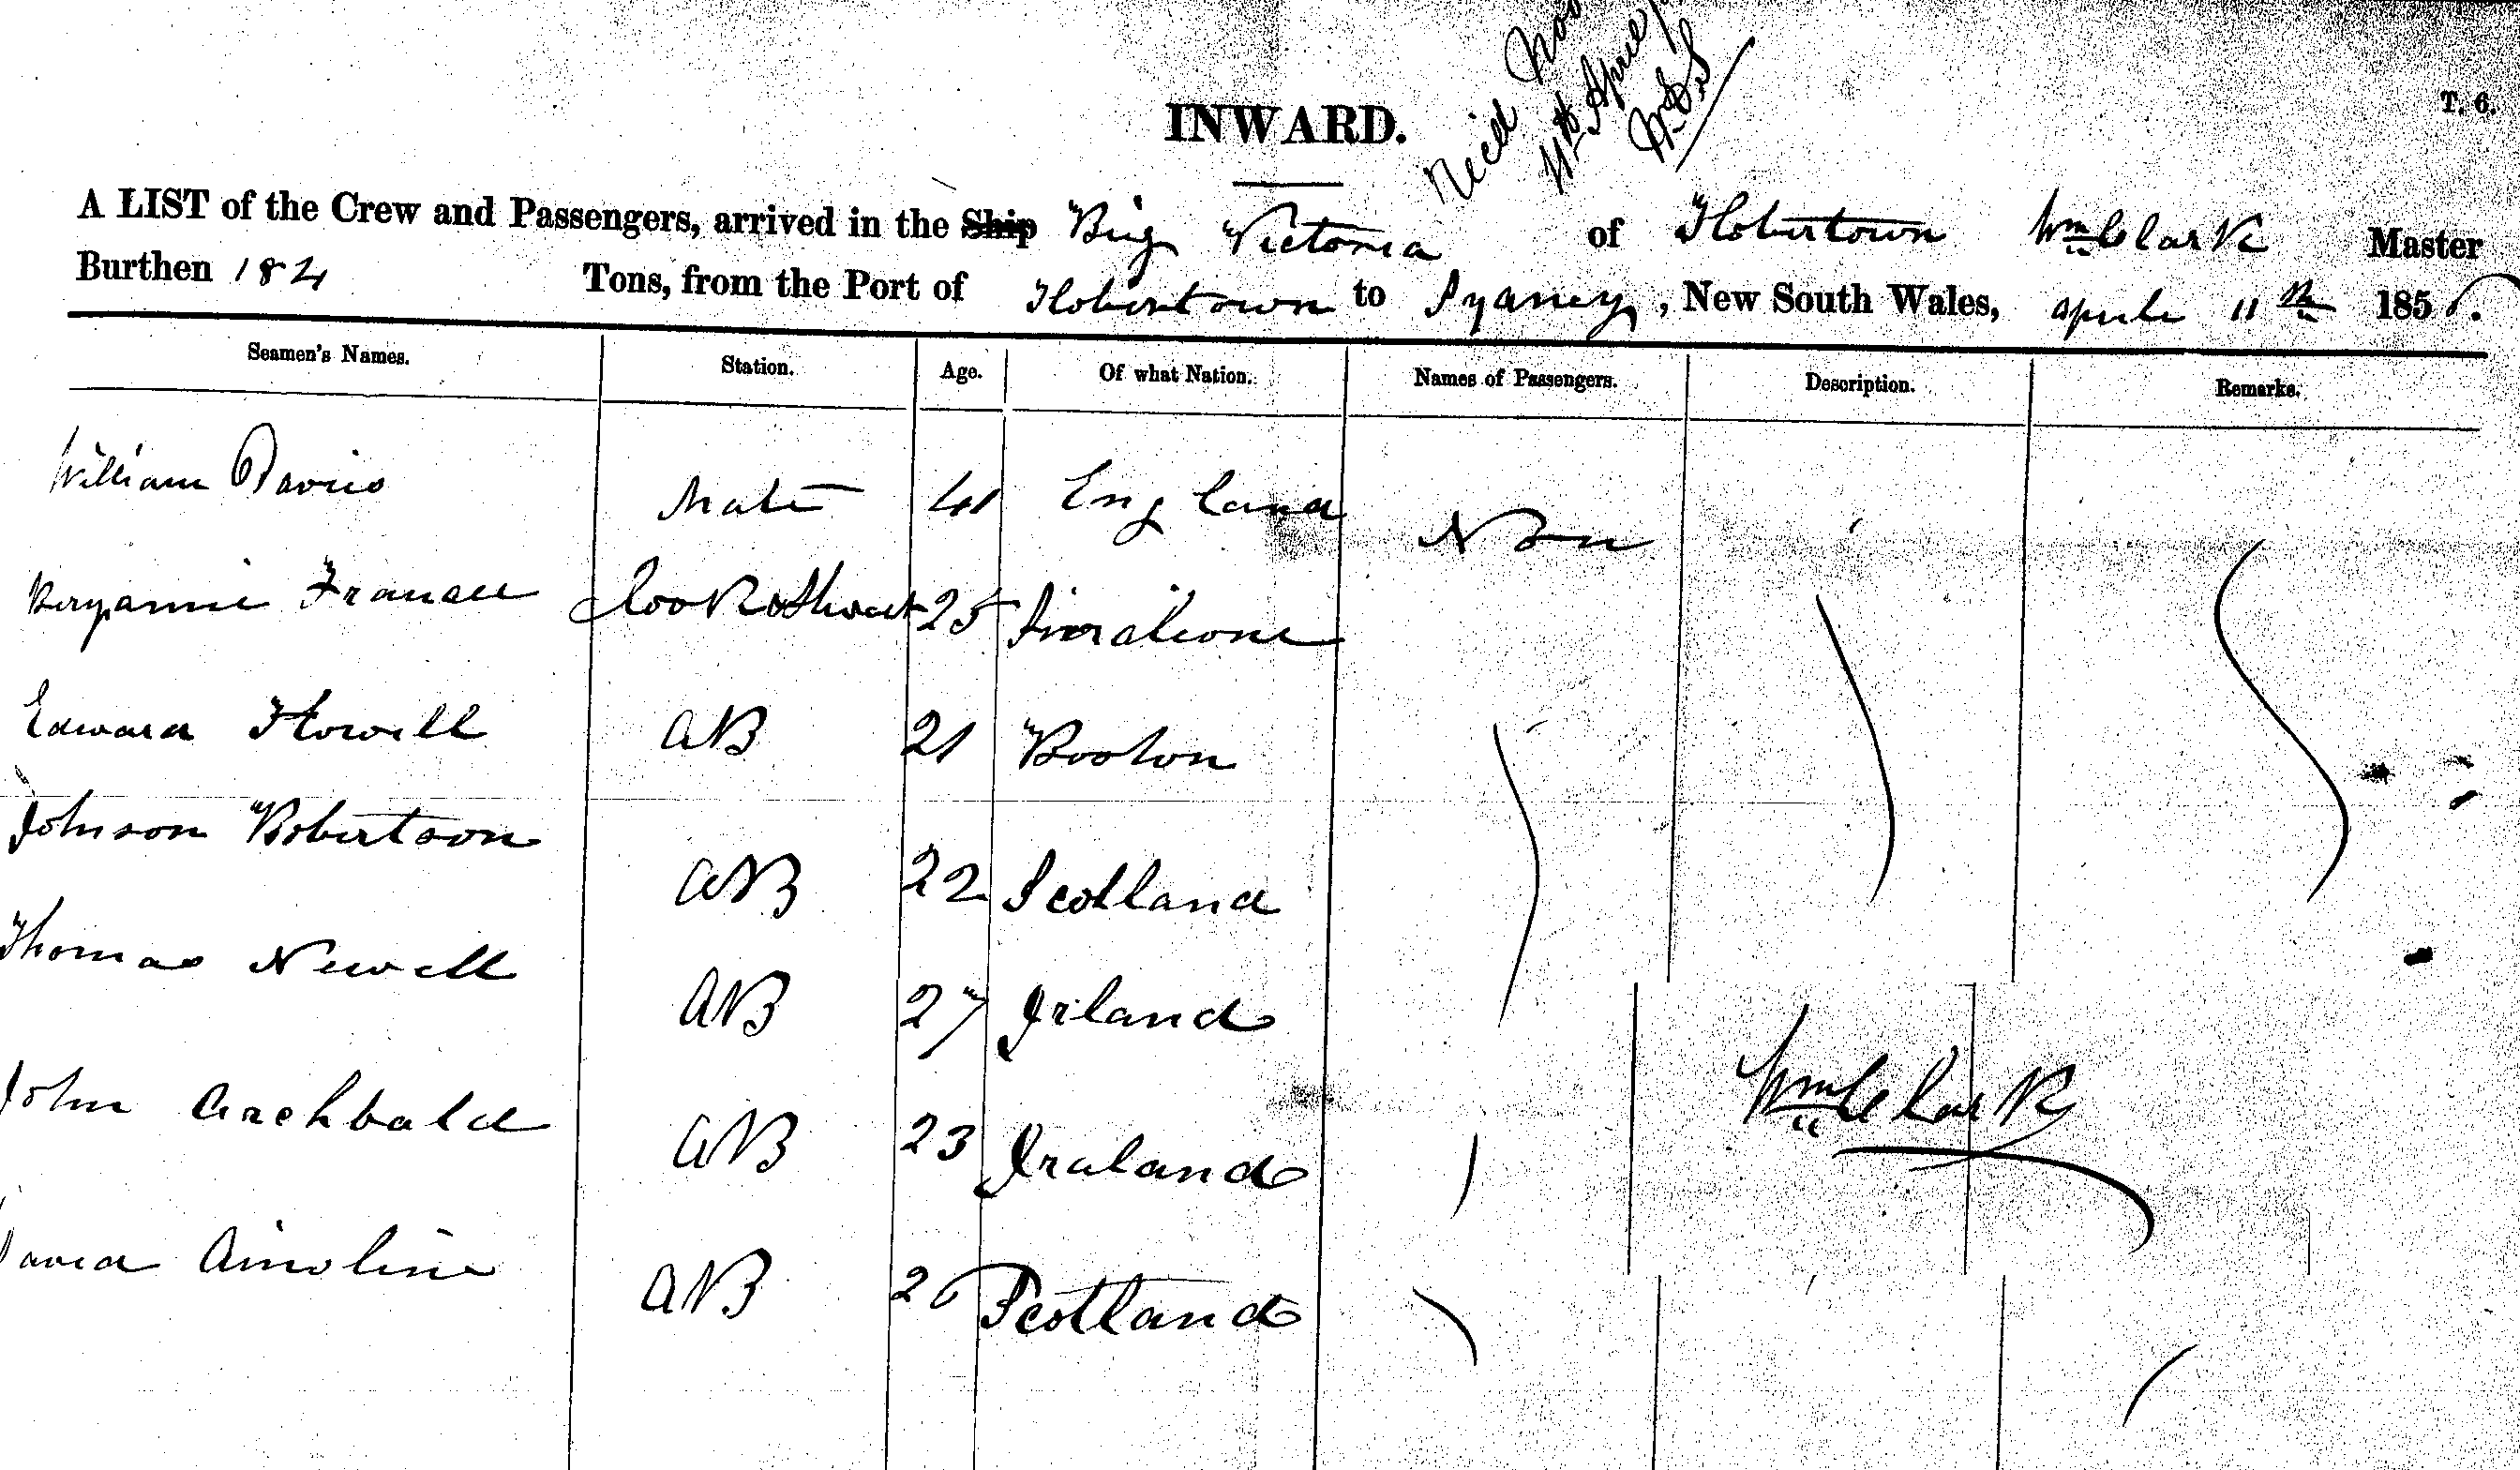 INWARD.
T. 6.
11th April
A LIST of the Crew and Passengers, arrived in the Ship Brig Victoria of Hobertown Wm Clark Master
Burthen 182 Tons, from the Port of Hobertown to Sydney, New South Wales, 11th 185
Seamen's Names. Station. Age. Of what Nation. Names of Passengers. Description. Remarks.
William Davies Mate 41 England Non
25
Edward Howell AB 21 Boston
Johnson Robertson AB 22 Scotland
Thomas Newell AB 27 Irland
John Archbald AB 23 Iraland
Wm Clark
David AB 26 Scotland